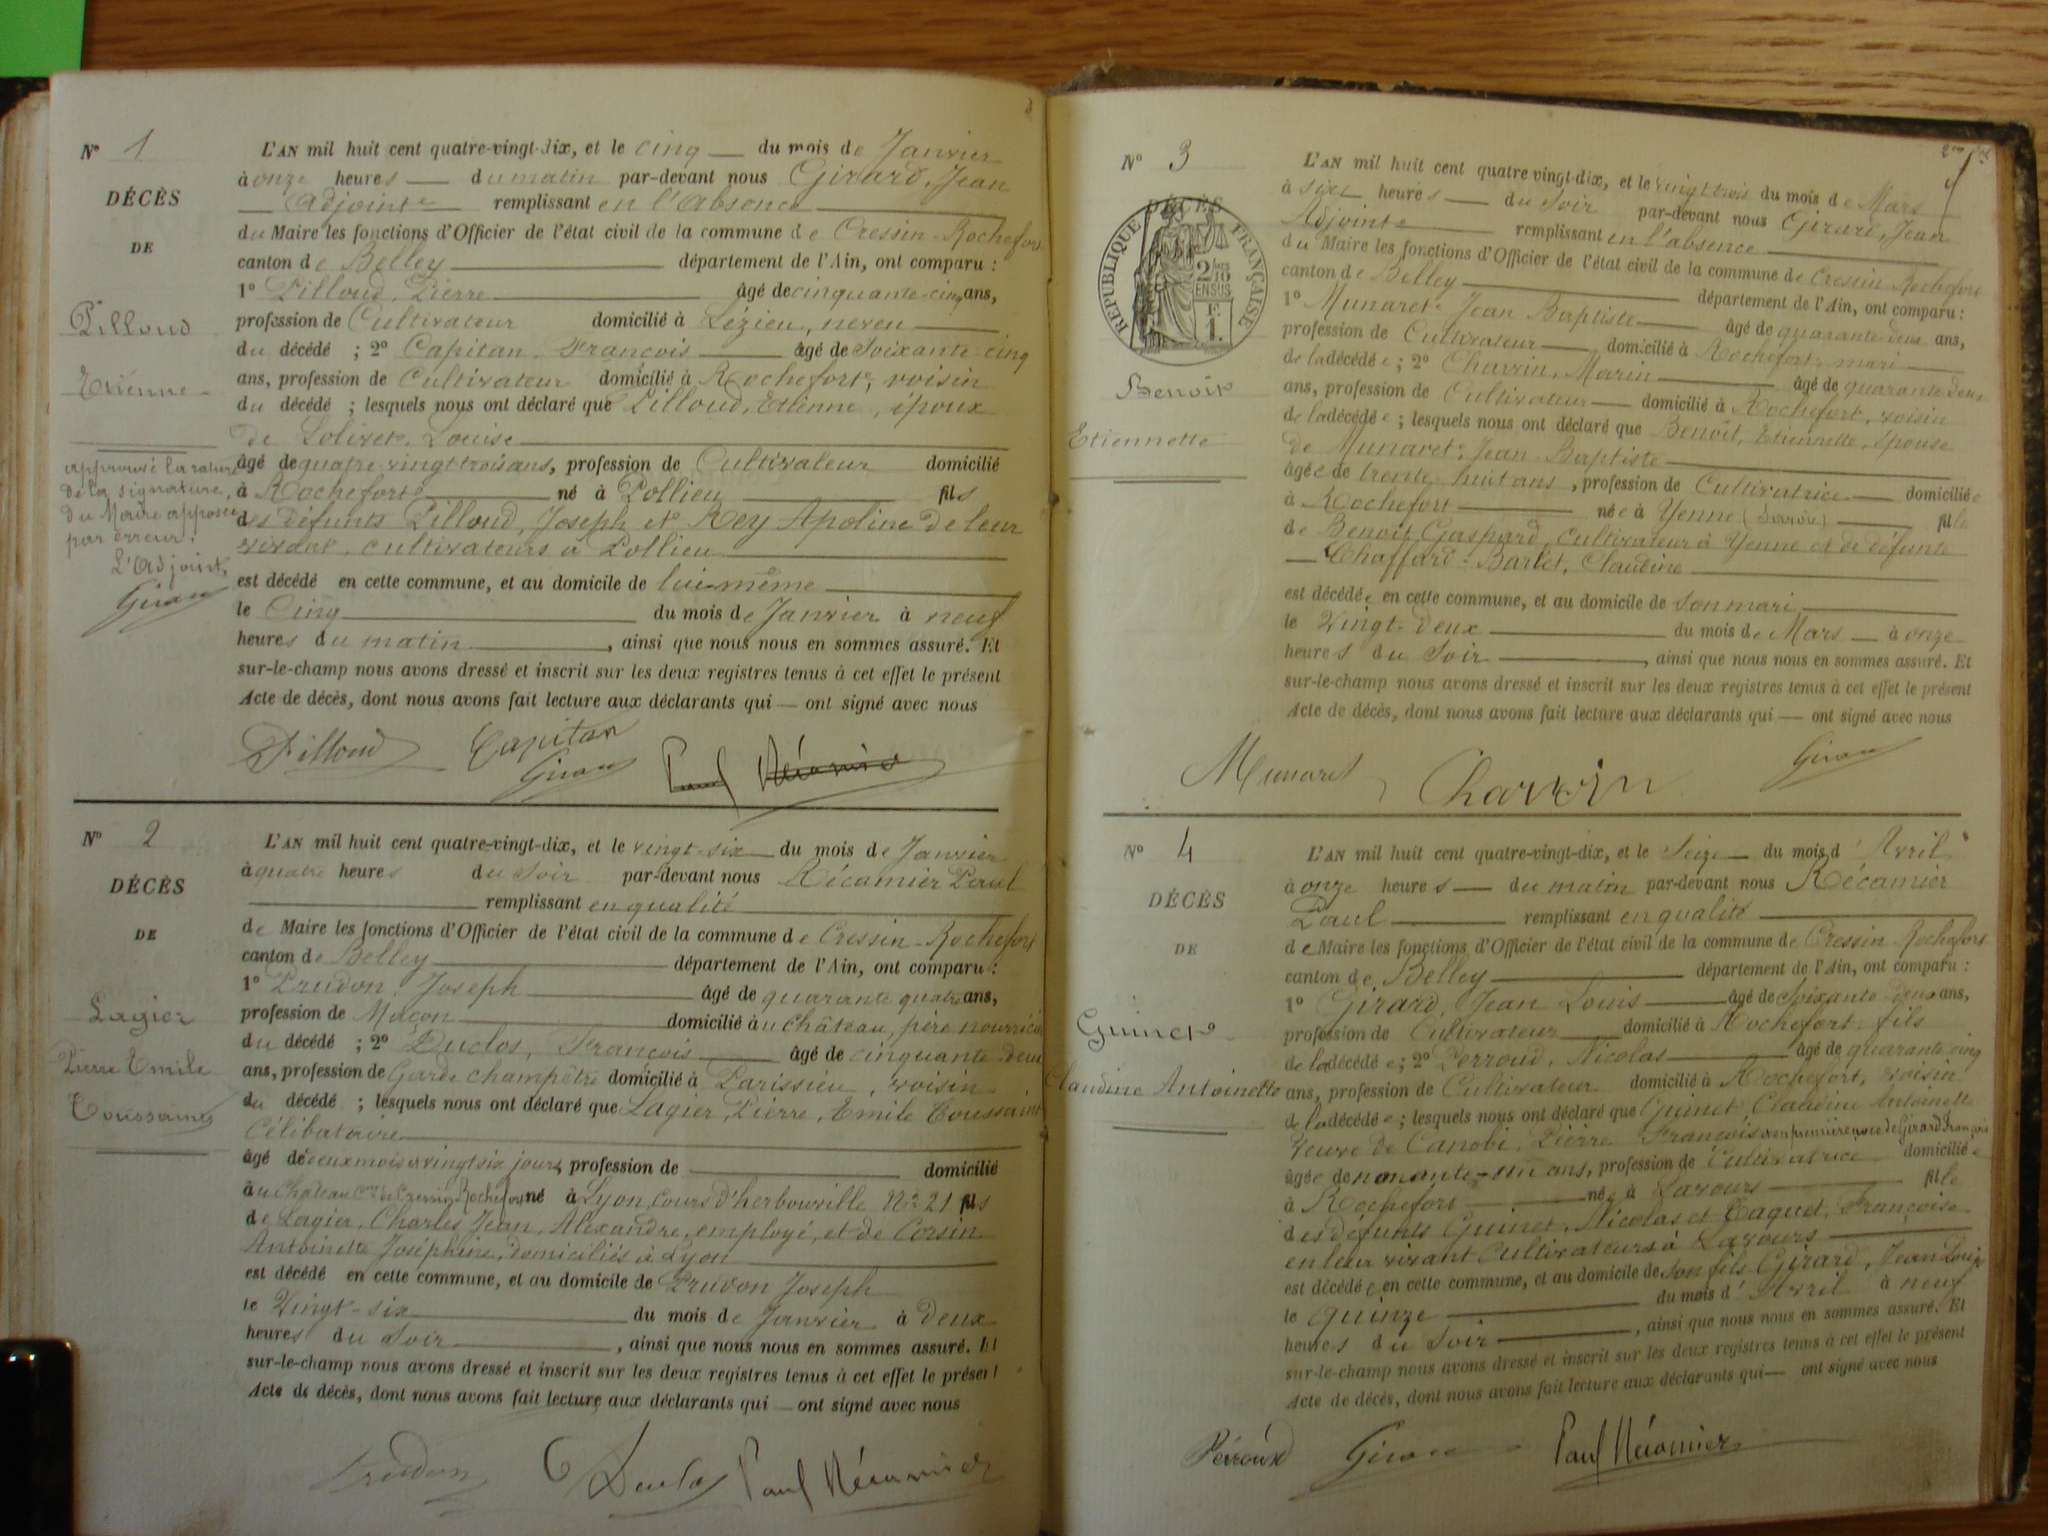 N° 1
DÉCÈS
DE
Pilloud
Etienne
approuvé la rature
de la signature,
du Maire apposée
par erreur.
L'Adjoint,
Girard
L'AN mil huit cent quatre-vingt-dix, et le cinq du mois de Janvier
à onze heures du matin par-devant nous Girard, Jean
Adjoint remplissant en l'absence
du Maire les fonctions d'Officier de l'état civil de la commune de Cressin-Rochefort
canton de Belley département de l'Ain, ont comparu :
1° Pilloud, Pierre âgé de cinquante-cinq ans,
profession de Cultivateur domicilié à Lézieu, neveu
du décédé ; 2° Capitan, François âgé de Soixante-cinq
ans, profession de Cultivateur domicilié à Rochefort, voisin
du décédé ; lesquels nous ont déclaré que Pilloud, Etienne, époux
de Louise
âgé de quatre-vingt trois ans, profession de Cultivateur domicilié
à Rochefort né à Pollieu fils
des défunts Pilloud, Joseph et Rey Apoline de leur
vivant, cultivateurs à Pollieu
est décédé en cette commune, et au domicile de lui-même
le Cinq du mois de Janvier à neuf
heures du matin, ainsi que nous nous en sommes assuré. Et
sur-le-champ nous avons dressé et inscrit sur les deux registres tenus à cet effet le présent
Acte de décès, dont nous avons fait lecture aux déclarants qui — ont signé avec nous
Pilloud Capitan
Girard Paul Récamier
N° 2
DÉCÈS
DE
Lagier
Pierre Emile
Toussaint
L'AN mil huit cent quatre-vingt-dix, et le vingt-six du mois de Janvier
à quatre heures du Soir par-devant nous Récamier Paul
remplissant en qualité
de Maire les fonctions d'Officier de l'état civil de la commune de Cressin-Rochefort
canton de Belley département de l'Ain, ont comparu :
1° Prudon, Joseph âgé de quarante quatre ans,
profession de Maçon domicilié au Château, père nourricier
du décédé ; 2° Duclos, François âgé de cinquante-deux
ans, profession de Garde champêtre domicilié à Parissieu, voisin
du décédé ; lesquels nous ont déclaré que Lagier, Pierre, Emile Toussaint
Célibataire
âgé de deux mois & vingt six jours, profession de domicilié
au Château Cne de Cressin Rochefort né à Lyon, cours d'herbouville N° 21 fils
de Lagier, Charles Jean, Alexandre, employé, et de Corsin
Antoinette Joséphine, domiciliés à Lyon
est décédé en cette commune, et au domicile de Prudon Joseph
le Vingt-six du mois de Janvier à deux
heures du Soir, ainsi que nous nous en sommes assuré. Et
sur-le-champ nous avons dressé et inscrit sur les deux registres tenus à cet effet le présent
Acte de décès, dont nous avons fait lecture aux déclarants qui — ont signé avec nous
Prudon Duclos Paul Récamier
N° 3
DÉCÈS
RÉPUBLIQUE FRANÇAISE
2/10
EN SUS
F.
1.
Benoît
Etiennette
L'AN mil huit cent quatre vingt-dix, et le vingt trois du mois de Mars
à six heures du Soir par-devant nous Girard, Jean
Adjoint remplissant en l'absence
du Maire les fonctions d'Officier de l'état civil de la commune de Cressin Rochefort
canton de Belley département de l'Ain, ont comparu :
1° Munaret Jean Baptiste âgé de quarante-deux ans,
profession de Cultivateur domicilié à Rochefort, mari
de la décédée ; 2° Charvin, Marin âgé de quarante deux
ans, profession de Cultivateur domicilié à Rochefort, voisin
de la décédée ; lesquels nous ont déclaré que Benoît, Etiennette, épouse
de Munaret, Jean-Baptiste
âgée de trente-huit ans, profession de Cultivatrice domiciliée
à Rochefort née à Yenne (Savoie) fille
de Benoît Gaspard, cultivateur à Yenne et de défunte
Chaffard-Bartet, Claudine
est décédée en cette commune, et au domicile de son mari
le Vingt-deux du mois de Mars à onze
heures du Soir, ainsi que nous nous en sommes assuré. Et
sur-le-champ nous avons dressé et inscrit sur les deux registres tenus à cet effet le présent
Acte de décès, dont nous avons fait lecture aux déclarants qui — ont signé avec nous
Munaret Charvin Girard
N° 4
DÉCÈS
DE
Guinet
Claudine Antoinette
L'AN mil huit cent quatre-vingt-dix, et le Seize du mois d'Avril
à onze heures du matin par-devant nous Récamier
Paul remplissant en qualité
de Maire les fonctions d'Officier de l'état civil de la commune de Cressin Rochefort
canton de Belley département de l'Ain, ont comparu :
1° Girard, Jean Louis âgé de Soixante-deux ans,
profession de Cultivateur domicilié à Rochefort, fils
de la décédée ; 2° Perroud, Nicolas âgé de quarante-cinq
ans, profession de Cultivateur domicilié à Rochefort, voisin
de la décédée ; lesquels nous ont déclaré que Guinet, Claudine Antoinette
Veuve de Canobi, Pierre François & en première noce de Girard François
âgée de nonante-un ans, profession de Cultivatrice domiciliée
à Rochefort née à Lavours fille
des défunts Guinet, Nicolas et Taquet, Françoise
en leur vivant Cultivateurs à Lavours
est décédée en cette commune, et au domicile de son fils Girard, Jean Louis
le quinze du mois d'Avril à neuf
heures du Soir, ainsi que nous nous en sommes assuré. Et
sur-le-champ nous avons dressé et inscrit sur les deux registres tenus à cet effet le présent
Acte de décès, dont nous avons fait lecture aux déclarants qui — ont signé avec nous
Perroud Girard Paul Récamier